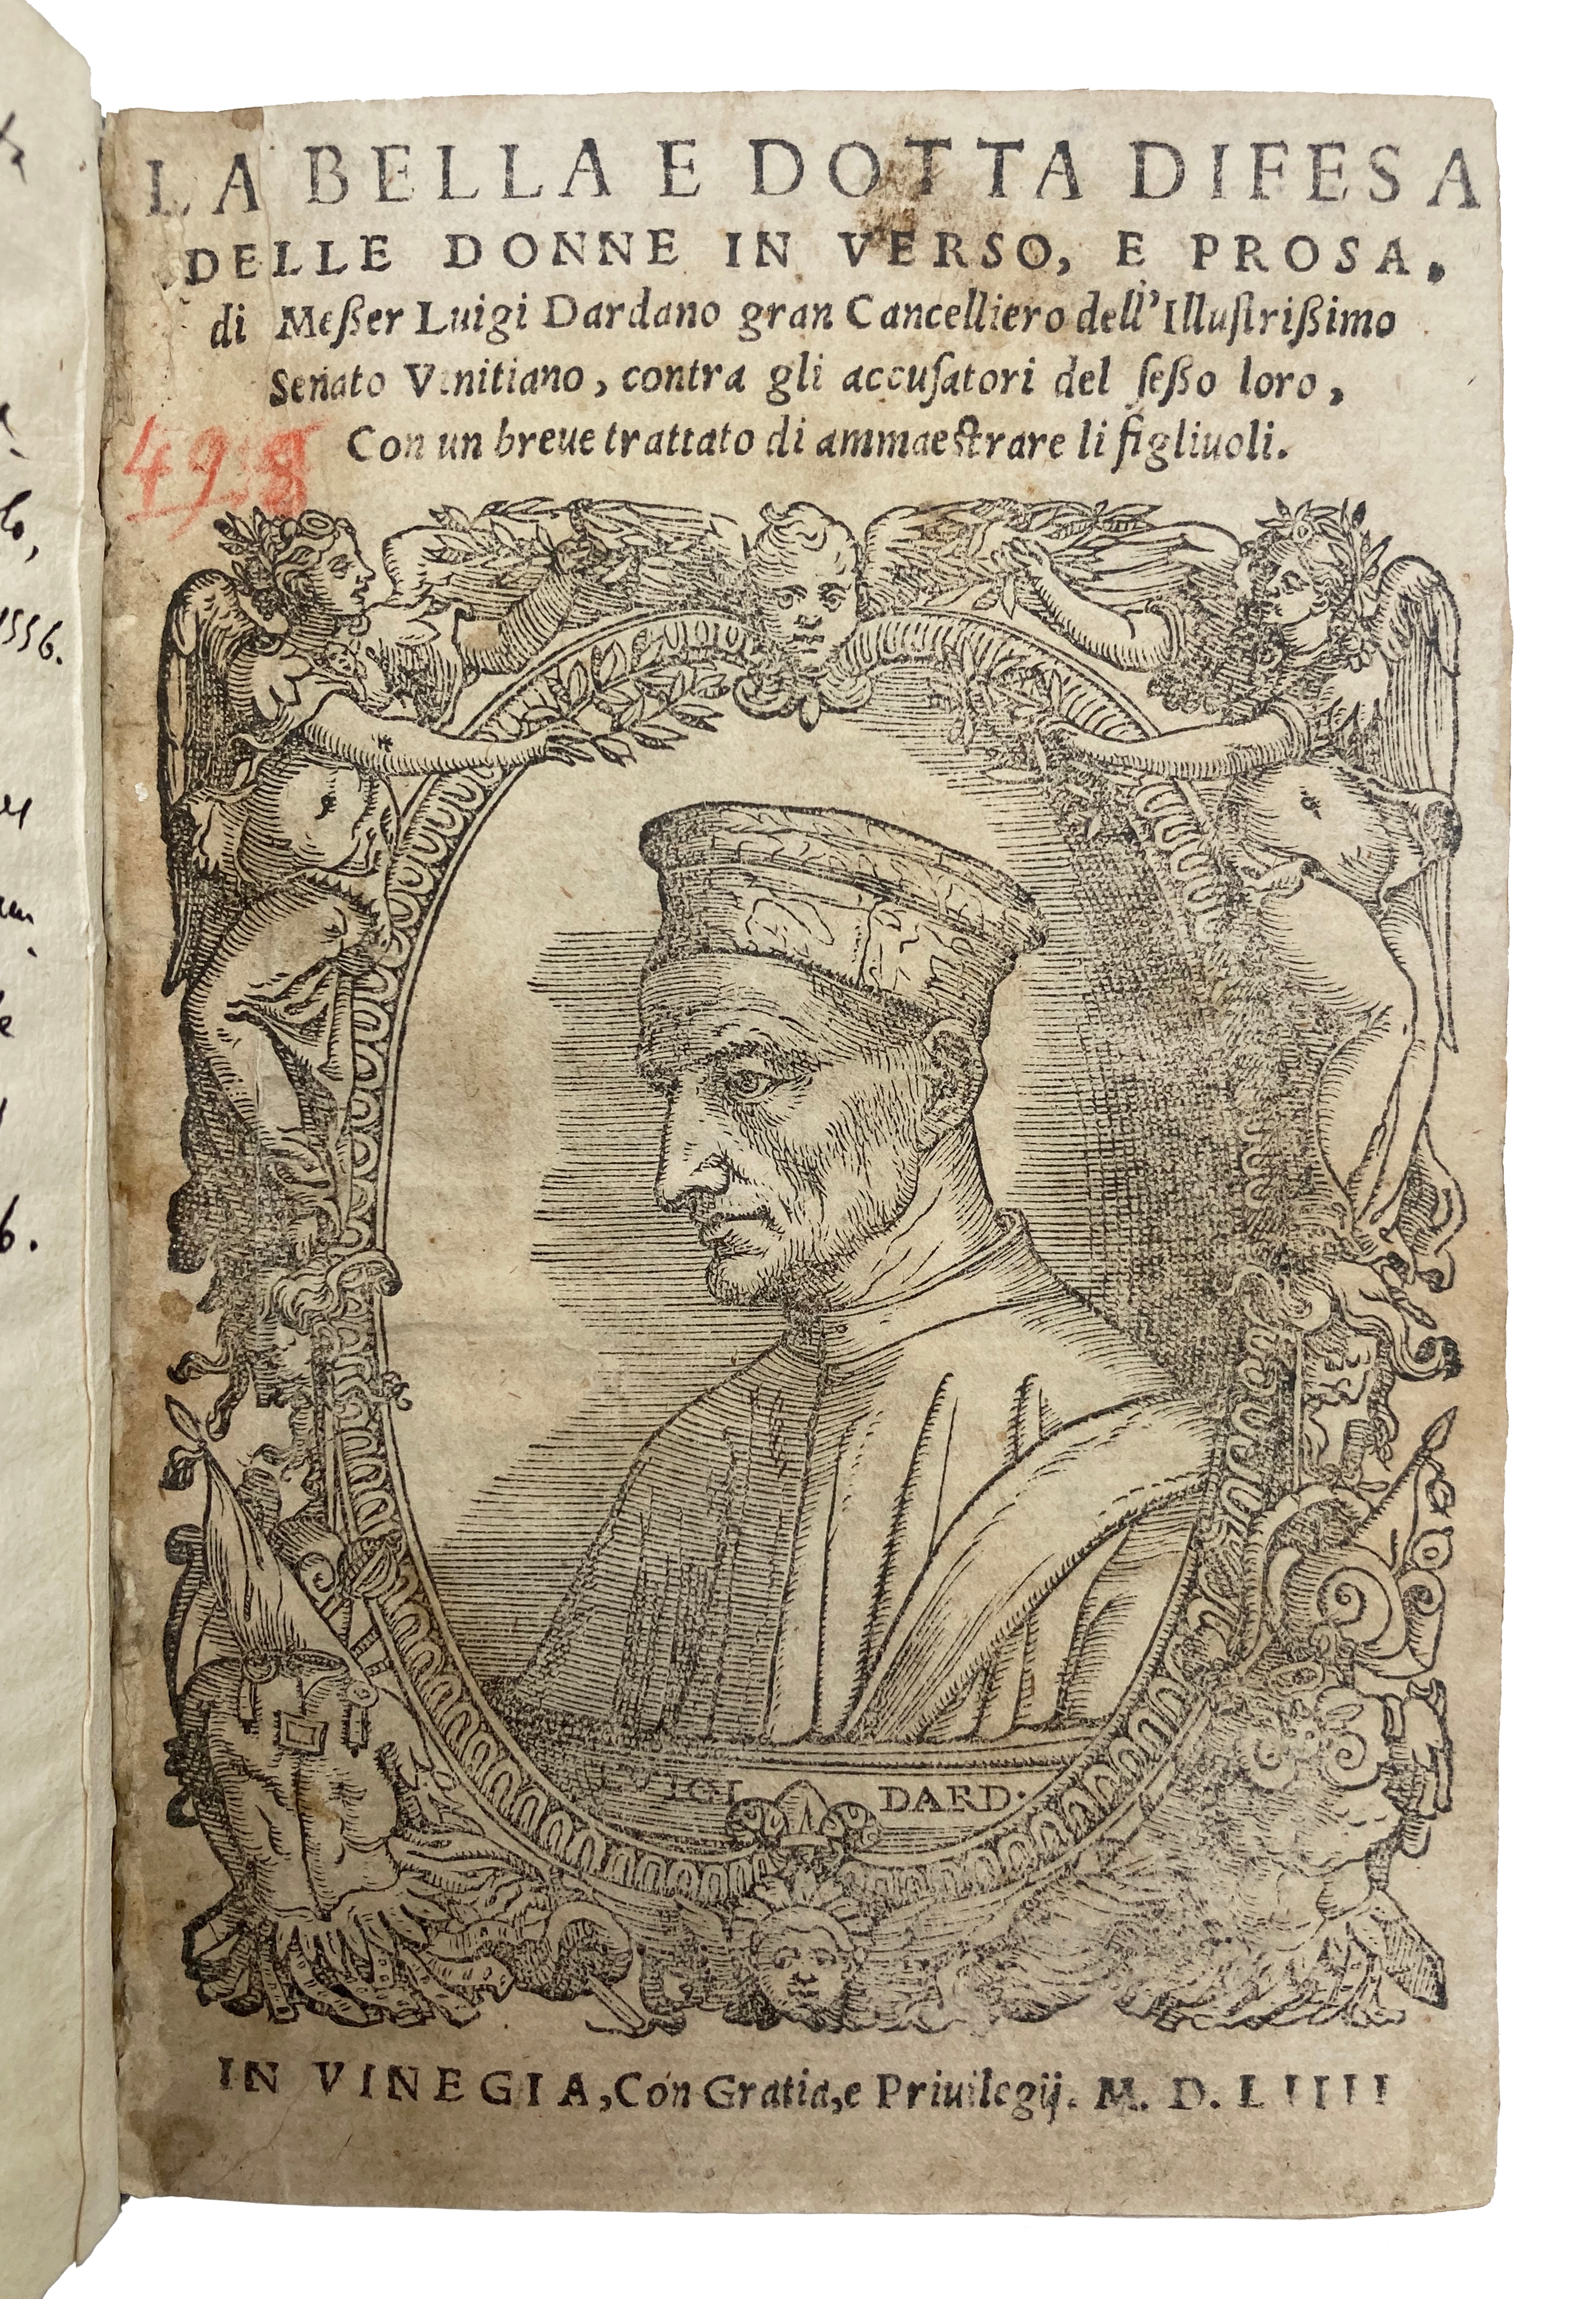 LA BELLA E DOTTA DIFESA
DELLE DONNE IN VERSO, E PROSA,
di Meßer Luigi Dardano gran Cancelliero dell'Illuſtrißimo
Senato Venitiano, contra gli accuſatori del ſeßo loro,
Con un breue trattato di ammaeſtrare li figliuoli.
498
1556.
DARD.
IN VINEGIA, Con Gratia, e Priuilegij. M. D. LIIII